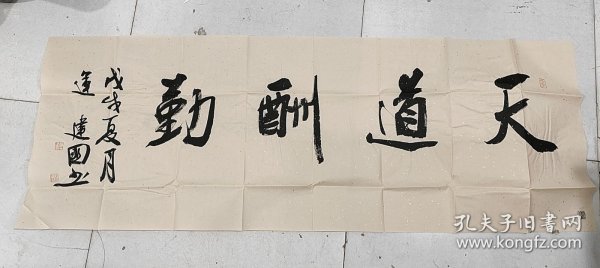 天道酬勤
戊戌夏月
建国书
孔夫子旧书网
www.kongfz.com